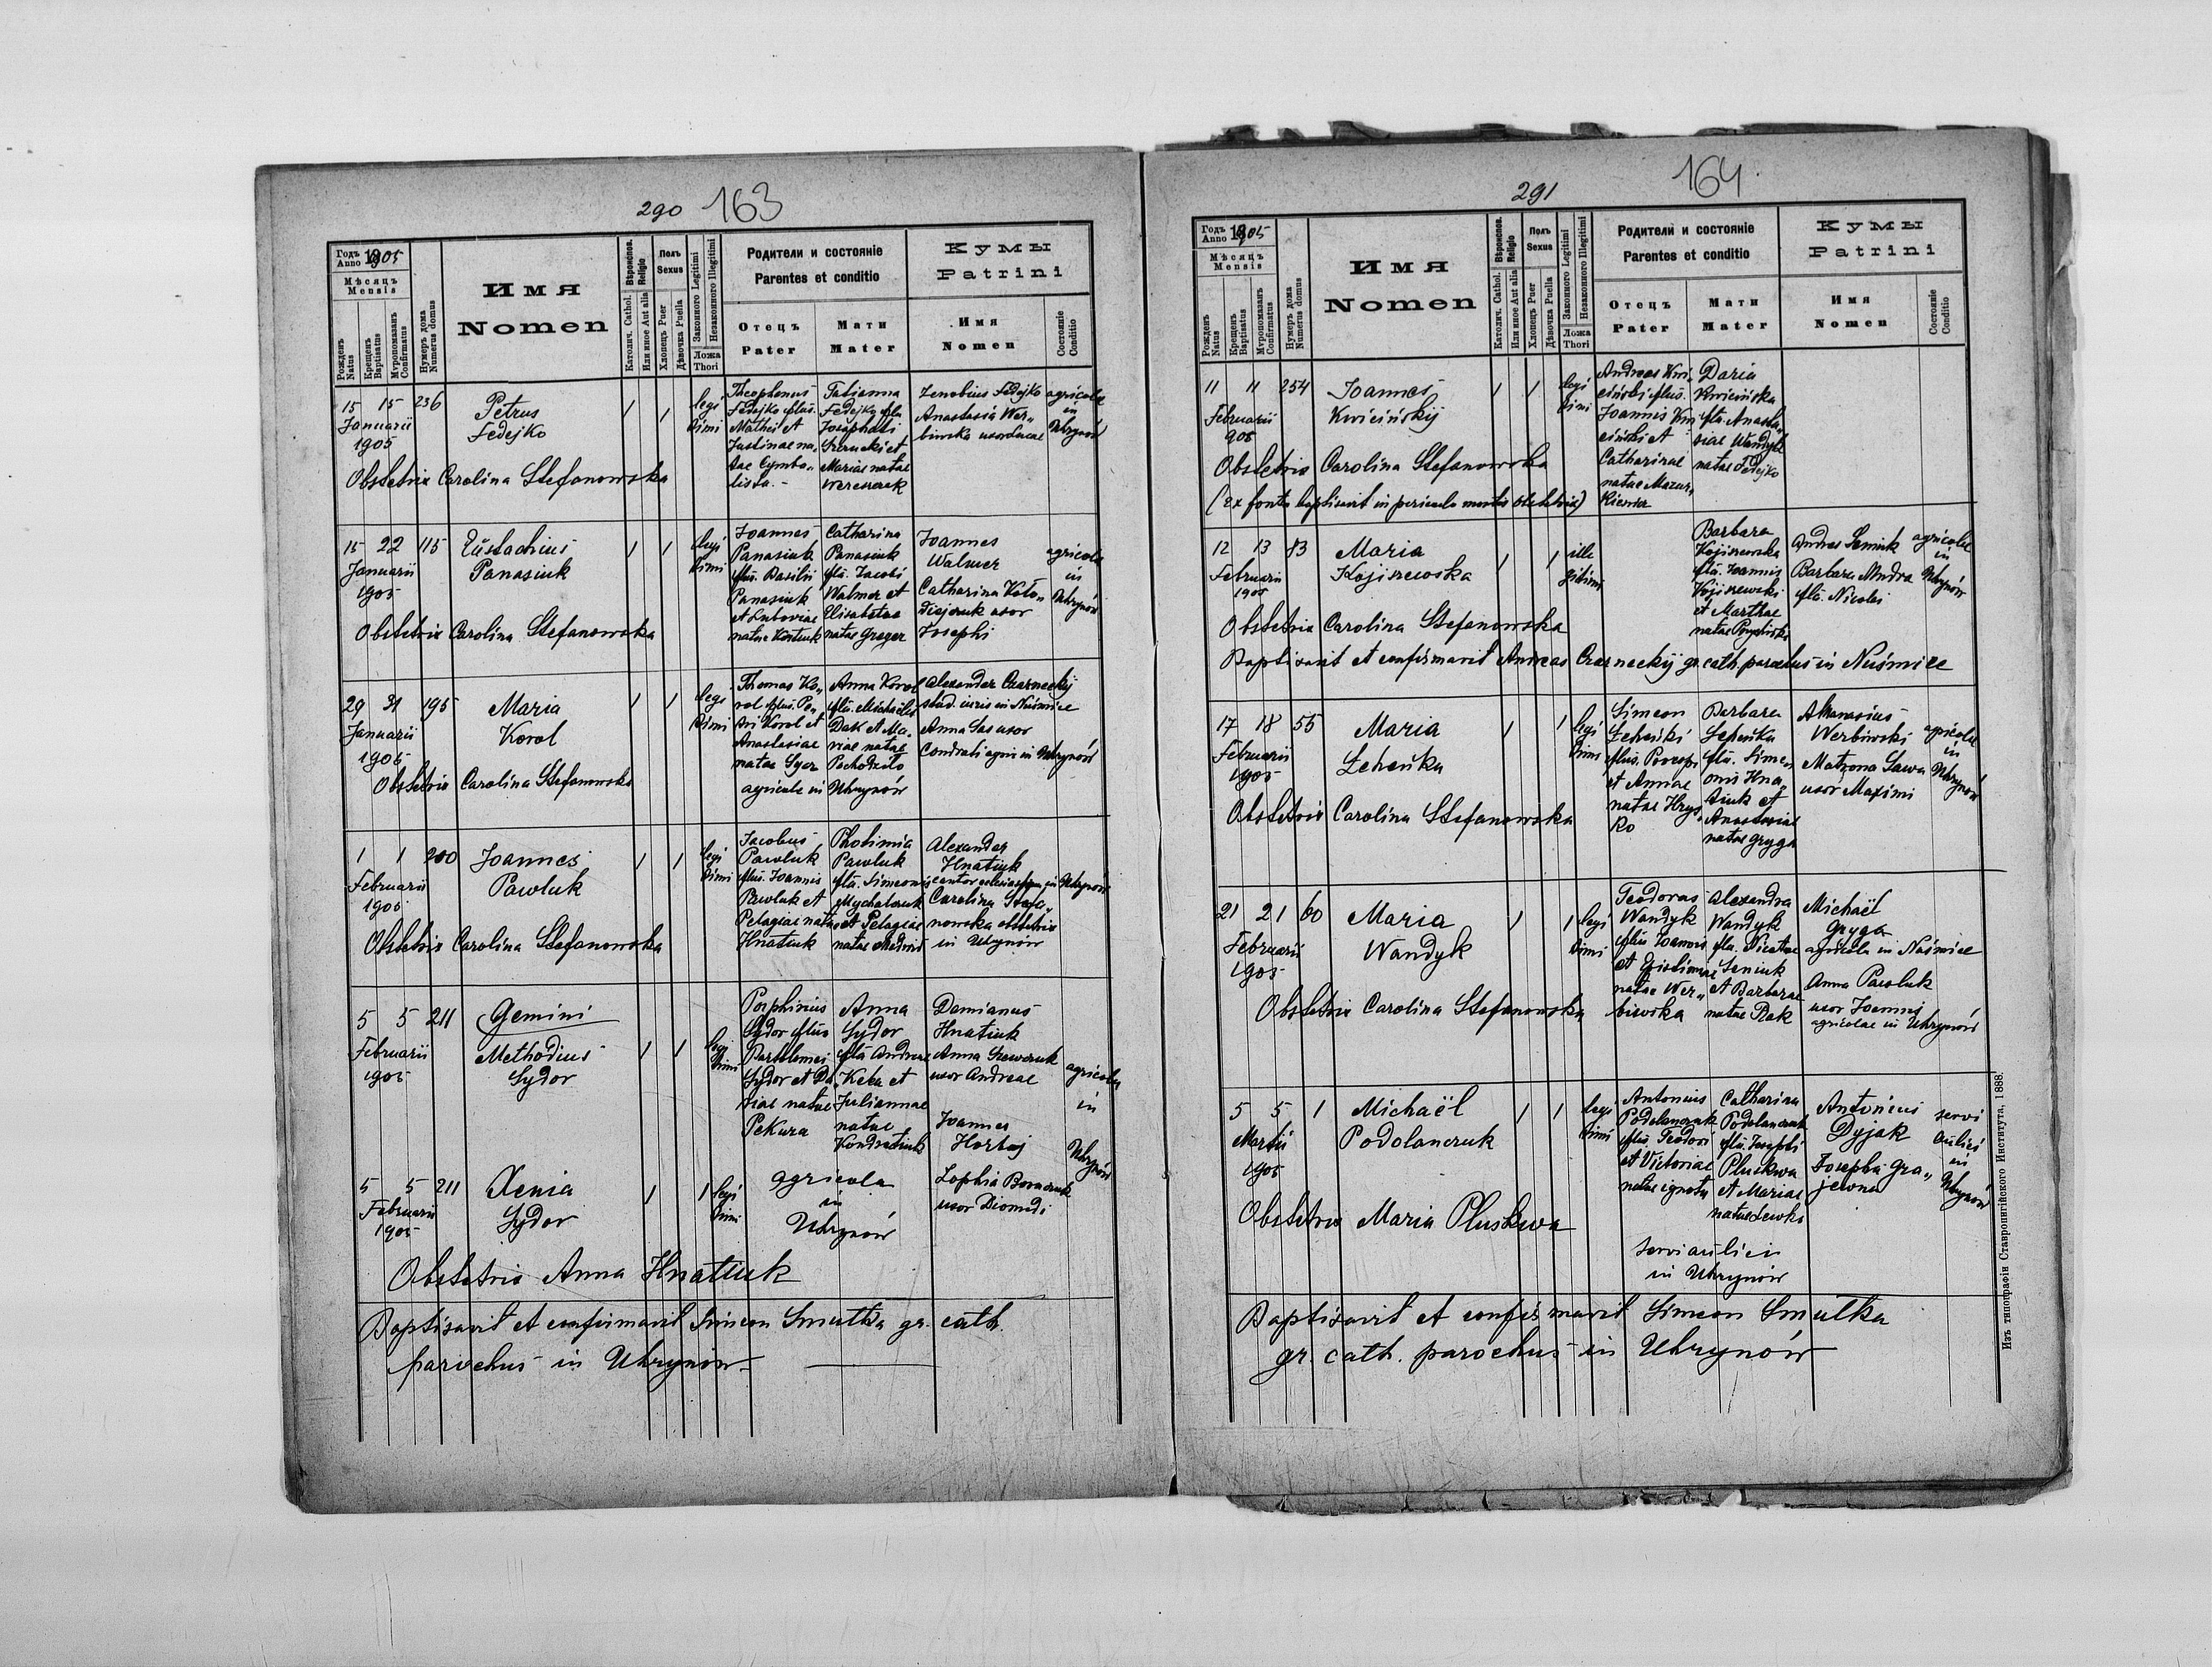 290 163
Годъ Anno 1905
Мѣсяцъ Mensis
Рожденъ Natus
Крещенъ Baptisatus
Мѵропомазанъ Confirmatus
Нумеръ дома Numerus domus
Имя Nomen
Вѣроиспов. Religio
Католич. Cathol.
Или иное Aut alia
Полъ Sexus
Хлопецъ Puer
Дѣвочка Puella
Законного Legitimi
Незаконного Illegitimi
Ложа Thori
Родители и состояніе
Parentes et conditio
Отецъ Pater
Мати Mater
Кумы
Patrini
Имя Nomen
Состояніе Conditio
15 15 236
Januarii
1905
Petrus
Fedejko
1 1
legi
timi
Theophanus
Fedejko filius
Mathei et
Justinae na„
tae Cymba„
lista.-
Tatianna
Fedejko filia
Josaphati
et
Mariae natae
Zenobius Fedejko
Anastasia Wer„
biwska uxor Lucae
agricolae
in
Uhrynów
Obstetrix Carolina Stefanowska
15 22 115
Januarii
1905
Eustachius
Panasiuk
1 1
legi
timi
Joannes
Panasiuk
filius Basilii
Panasiuk
et
natae Kostiuk
Catharina
Panasiuk
filia Jacobi
Walmer et
Elisabetae
natae Greger
Joannes
Walmer
Catharina Koło„
diejczuk uxor
Josephi
agricolae
in
Uhrynów
Obstetrix Carolina Stefanowska
29 31 195
Januarii
1905
Maria
Korol
1 1
legi
timi
Thomas Ko„
rol filius Pe„
tri Korol et
Anastasiae
natae Syer
Anna Korol
filia Michaelis
Dak et Ma„
riae natae
Pochodziło
agricolae in Uhrynów
Alexander Czarneckij
stud. iuris in Nuśmice
Anna Sas uxor
Condrati agric in Uhrynów
Obstetrix Carolina Stefanowska
1 1 200
Februarii
1905
Joannes
Pawluk
1 1
legi
timi
Jacobus
Pawluk
filius Joannis
Pawluk et
Pelagiae natae
Hnatiuk
Photimia
Pawluk
filia Simeonis
Mychalczuk
et Pelagiae
natae
Alexander
Hnatiuk
cantor in Uhrynów
Carolina Stefa„
nowska obstetrix
in Uhrynów
Obstetrix Carolina Stefanowska
5 5 211
Februarii
1905
Gemini
Methodius
Sydor
1 1
legi
timi
Porphirius
Sydor filius
Bartholomei
Sydor et Da„
riae natae
Pekura
Anna
Sydor
filia Andreae
Keta et
Juliannae
natae
Kondratiuk
Damianus
Hnatiuk
Anna Szewczuk
uxor Andreae
agricolae
in
Uhrynów
5 5 211
Februarii
1905
Xenia
Sydor
1 1
legi
timi
agricola
in
Uhrynów
Joannes
Hortaj
Sophia
uxor Diomidi
Obstetrix Anna Hnatiuk
Baptisavit et confirmavit Simeon Smulka gr. cath.
parochus in Uhrynów
291 164
Годъ Anno 1905
Мѣсяцъ Mensis
Рожденъ Natus
Крещенъ Baptisatus
Мѵропомазанъ Confirmatus
Нумеръ дома Numerus domus
Имя Nomen
Вѣроиспов. Religio
Католич. Cathol.
Или иное Aut alia
Полъ Sexus
Хлопецъ Puer
Дѣвочка Puella
Законного Legitimi
Незаконного Illegitimi
Ложа Thori
Родители и состояніе
Parentes et conditio
Отецъ Pater
Мати Mater
Кумы
Patrini
Имя Nomen
Состояніе Conditio
11 11 254
Februarii
905
Joannes
Kwicińskij
1 1
legi
timi
Andreas Kwi„
ciński filius
Joannis Kwi„
ciński et
Catharinae
natae Mazur„
kiewicz
Daria
Kwicińska
filia Anasta„
siae Wandyk
natae Fedejko
Obstetrix Carolina Stefanowska
(Ex fonte baptisavit in periculo mortis obstetrix)
12 13 83
Februarii
1905
Maria
Kojiszewska
1 1
ille
gitimi
Barbara
Kojiszewska
filia Joannis
Kojiszewski
et Marthae
natae
Andreas Semiuk
Barbara Mudra
filia Nicolai
agricolae
in
Uhrynów
Obstetrix Carolina Stefanowska
Baptisavit et confirmavit Andreas Czarneckij gr. cath. parochus in Nuśmice
17 18 55
Februarii
1905
Maria
Łeheńka
1 1
legi
timi
Simeon
Łeheńki
filius Procopi
et Annae
natae Hryc„
ko
Barbara
Łeheńka
filia Sime„
onis Hna„
tiuk et
Anastasiae
natae Gryga
Athanasius
Werbiwski
Matrona Sawa
uxor Maximi
agricolae
in
Uhrynów
Obstetrix Carolina Stefanowska
21 21 60
Februarii
1905
Maria
Wandyk
1 1
legi
timi
Teodorus
Wandyk
filius Joannis
et
natae Wer„
biwska
Alexandra
Wandyk
filia Nicetae
Seniuk
et Barbarae
natae Rak
Michaël
Gryga
agricola in Nuśmice
Anna Pawluk
uxor Joannis
agricolae in Uhrynów
Obstetrix Carolina Stefanowska
5 5 1
Martii
1905
Michaël
Podolanczuk
1 1
legi
timi
Antonius
Podolanczuk
filius Teodori
et Victoriae
natae ignota
Catharina
Podolanczuk
filia Josephi
Pluskwa
et Mariae
natae Lewko
servi aulici
in Uhrynów
Antonius
Dyjak
Josepha Gra„
jewna
servi
aulici
in
Uhrynów
Obstetrix Maria Pluskwa
Baptisavit et confirmavit Simeon Smulka
gr. cath. parochus in Uhrynów
Изъ типографіи Ставропигійского Института, 1888.